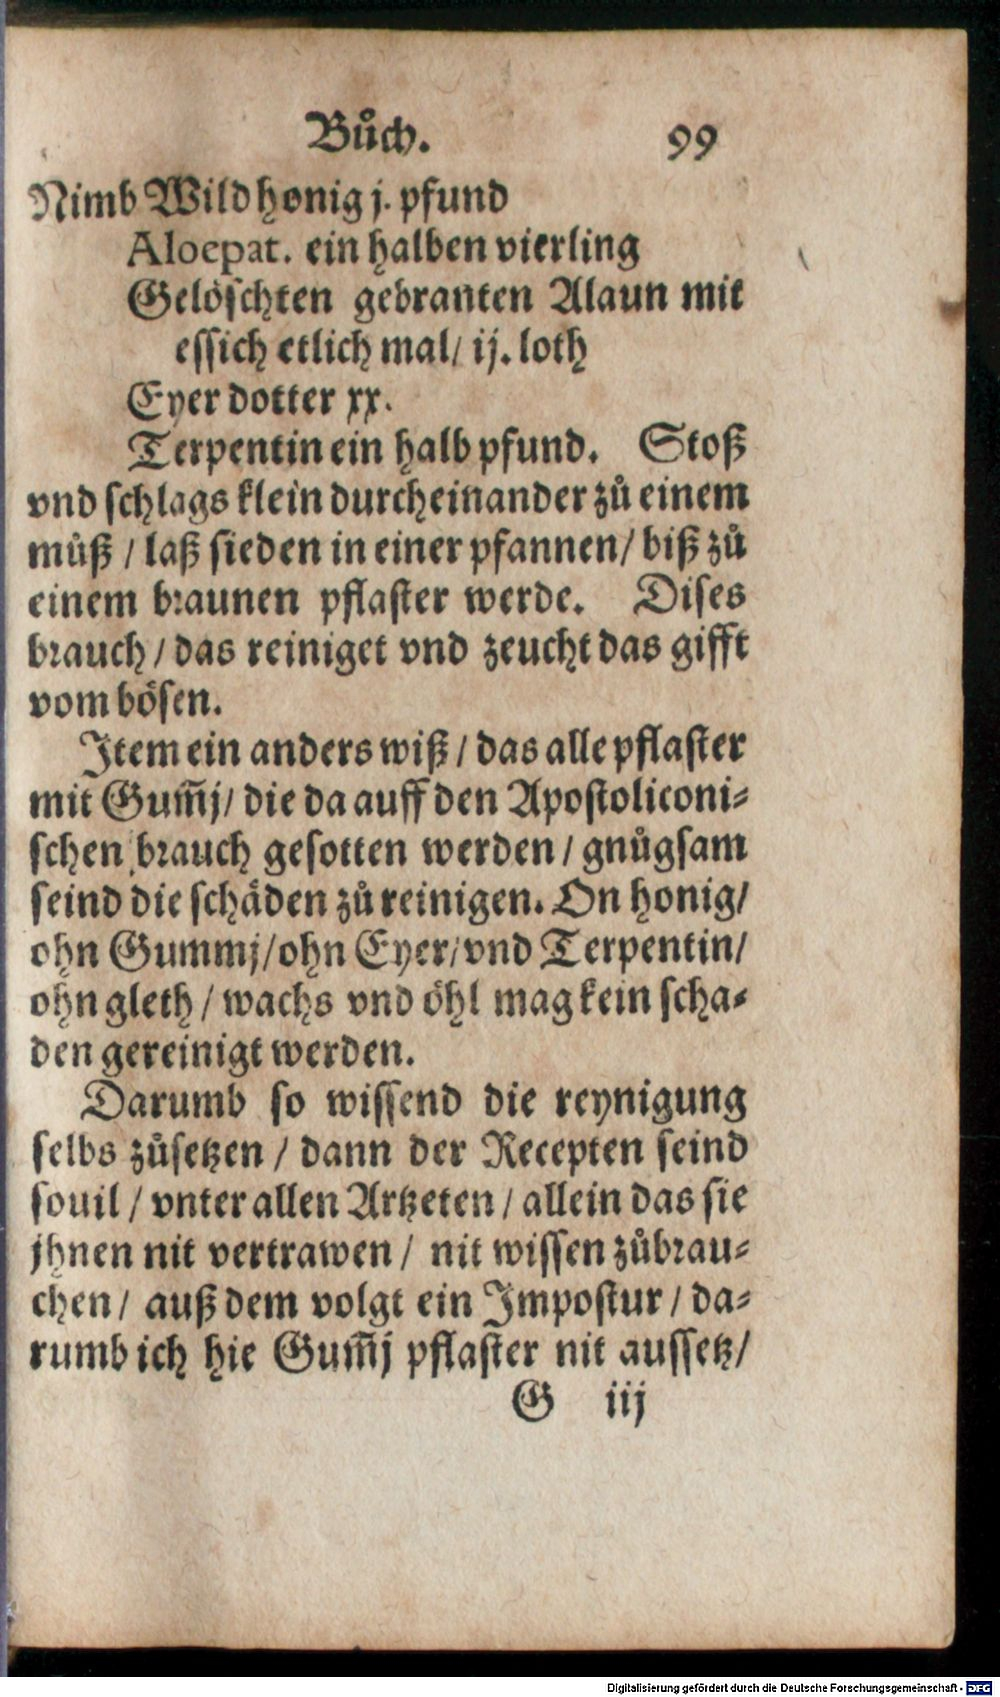 Bůch. 99
Nimb Wild honig j. pfund
Aloepat. ein halben vierling
Gelöschten gebranten Alaun mit
essich etlich mal/ ij. loth
Eyer dotter xx.
Terpentin ein halb pfund. Stoß
vnd schlags klein durcheinander zů einem
můß / laß sieden in einer pfannen/ biß zů
einem braunen pflaster werde. Dises
brauch / das reiniget vnd zeucht das gifft
vom bösen.
Item ein anders wiß / das alle pflaster
mit Gum̃j/ die da auff den Apostoliconi-
schen brauch gesotten werden / gnůgsam
seind die schäden zů reinigen. On honig/
ohn Gummj/ohn Eyer/vnd Terpentin/
ohn gleth / wachs vnd öhl mag kein scha-
den gereinigt werden.
Darumb so wissend die reynigung
selbs zůsetzen / dann der Recepten seind
souil / vnter allen Artzeten / allein das sie
jhnen nit vertrawen / nit wissen zůbrau-
chen / auß dem volgt ein Impostur / da-
rumb ich hie Gum̃j pflaster nit aussetz/
G iij
Digitalisierung gefördert durch die Deutsche Forschungsgemeinschaft - DFG